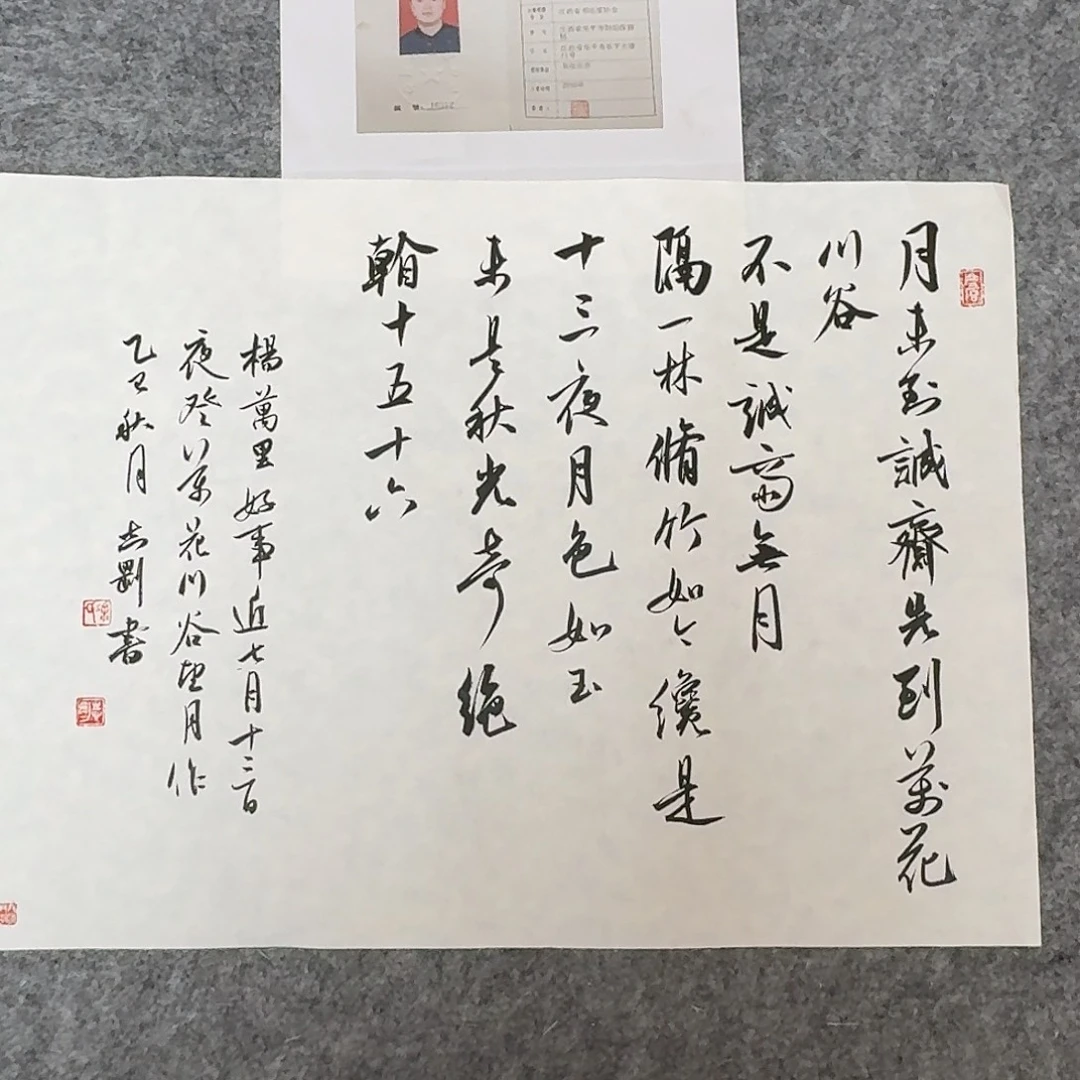 月未到誠齋先到萬花
川谷
不是誠齋無月
隔一林脩竹如今纔是
十三夜月色如玉
未是秋光奇絕
看十五十六
楊萬里好事近七月十三日
夜登萬花川谷望月作
乙巳秋月 志剛書